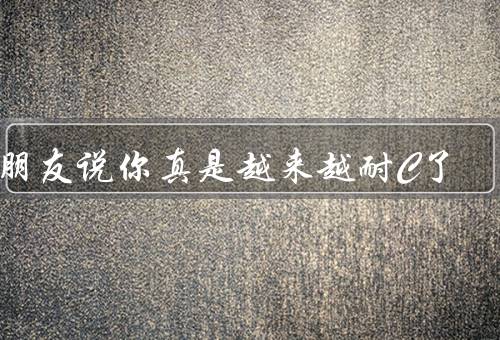 朋友说你真是越来越耐C了